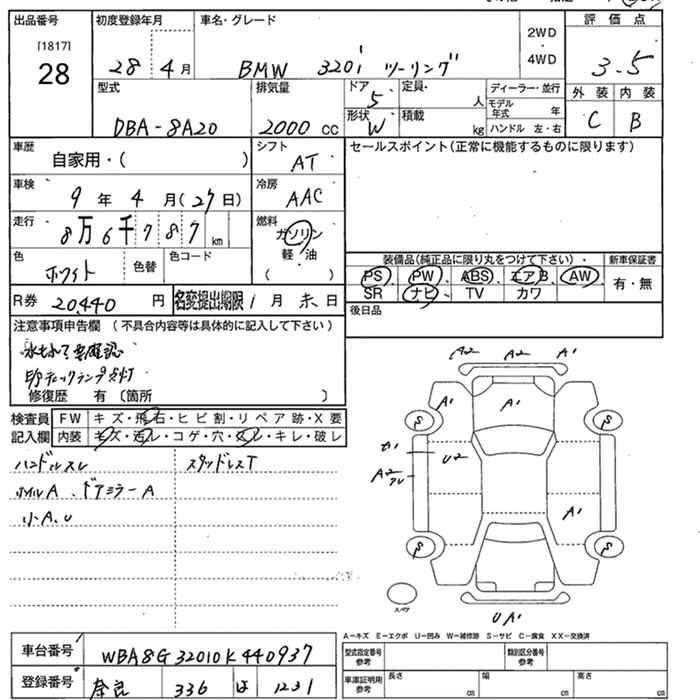 出品番号
[1817]
28
初度登録年月
28 年 4 月
車名・グレード
BMW 320i ツーリング
2WD
・
4WD
評価点
3.5
外装 内装
C B
型式
DBA-8A20
排気量
2000 cc
ドア
5
形状
W
定員
人
積載
kg
ディーラー・並行
モデル年式 年
ハンドル 左・右
車歴
自家用・( )
シフト
AT
車検
9 年 4 月 (27日)
冷房
AAC
走行
8万6千787 km
燃料
ガソリン
軽・油
( )
色
ホワイト
色替
色コード
R券 20,440 円
名変提出期限 1 月 末 日
セールスポイント(正常に機能するものに限ります)
装備品(純正品に限り丸をつけて下さい)・
新車保証書
PS PW ABS エアB AW
SR ナビ TV カワ
有・無
後日品
注意事項申告欄 (不具合内容等は具体的に記入して下さい)
修復歴 有 〔箇所 〕
検査員
記入欄
FW キズ・飛石・ヒビ割・リペア跡・X要
内装 キズ・汚レ・コゲ・穴・・キレ・破レ
ハンドルスレ スタッドレスT
ホイルA、ドアミラーA
小A、U
A2 A2 A1
A1 A1
S S
U2
A2
A1
S S
スペア
U A1
A-キズ E-エクボ U-凹み W-補修跡 S-サビ C-腐食 XX-交換済
車台番号
WBA8G32010K440937
登録番号
奈良 336 は 1231
型式指定番号
参考
類別区分番号
参考
車庫証明用
参考
長さ cm
幅 cm
高さ cm